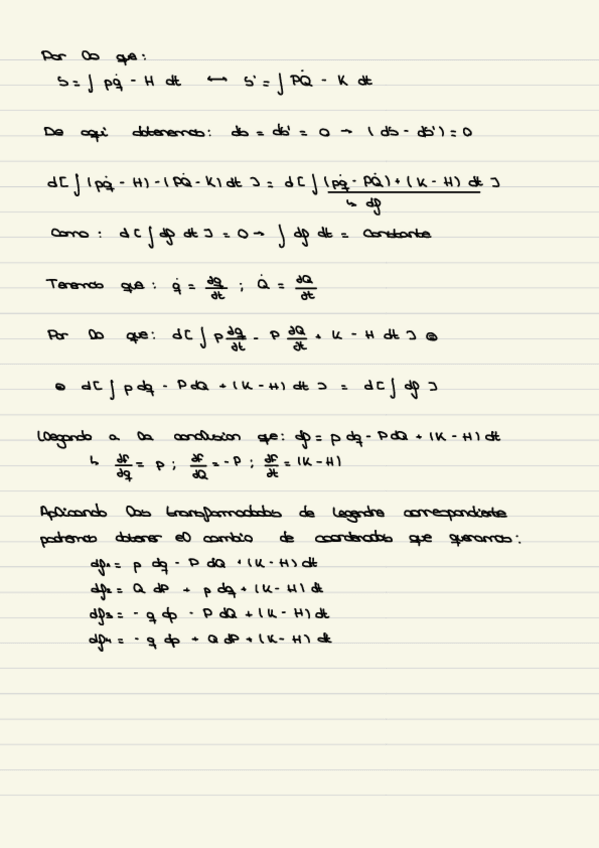 Por lo que:
S = ∫ pq̇ - H dt ↔ S' = ∫ PQ̇ - K dt
De aqui obtenemos: ds = ds' = 0 → (ds - ds') = 0
d[∫(pq̇ - H) - (PQ̇ - K) dt] = d[∫(pq̇ - PQ̇) + (K - H) dt]
↳ df
Como: d[∫ df dt] = 0 → ∫ df dt = constante
Tenemos que: q̇ = dq/dt ; Q̇ = dQ/dt
Por lo que: d[∫ p dq/dt - P dQ/dt + K - H dt]
d[∫ p dq - P dQ + (K - H) dt] = d[∫ df]
llegando a la conclusion que: df = p dq - P dQ + (K - H) dt
↳ df/dq = p ; df/dQ = -P ; df/dt = (K - H)
Aplicando las transformadas de legendre correspondiente
podremos obtener el cambio de coordenadas que queramos:
df₁ = p dq - P dQ + (K - H) dt
df₂ = Q dP + p dq + (K - H) dt
df₃ = - q dp - P dQ + (K - H) dt
df₄ = - q dp + Q dP + (K - H) dt